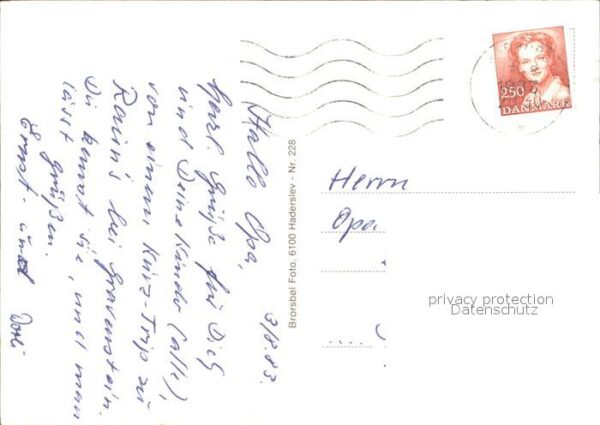 3/8.83.
Hallo Opa,
herzl. Grüße für Dich
und Deine Kinder (alle),
von einem Kurz-Trip zu
bei Gravenstein.
Du kennst sie, und man
lässt grüßen.
Ernst - und
Brorsbøl Foto, 6100 Haderslev - Nr. 228
250
DANMARK
Herrn
Opa
privacy protection
Datenschutz